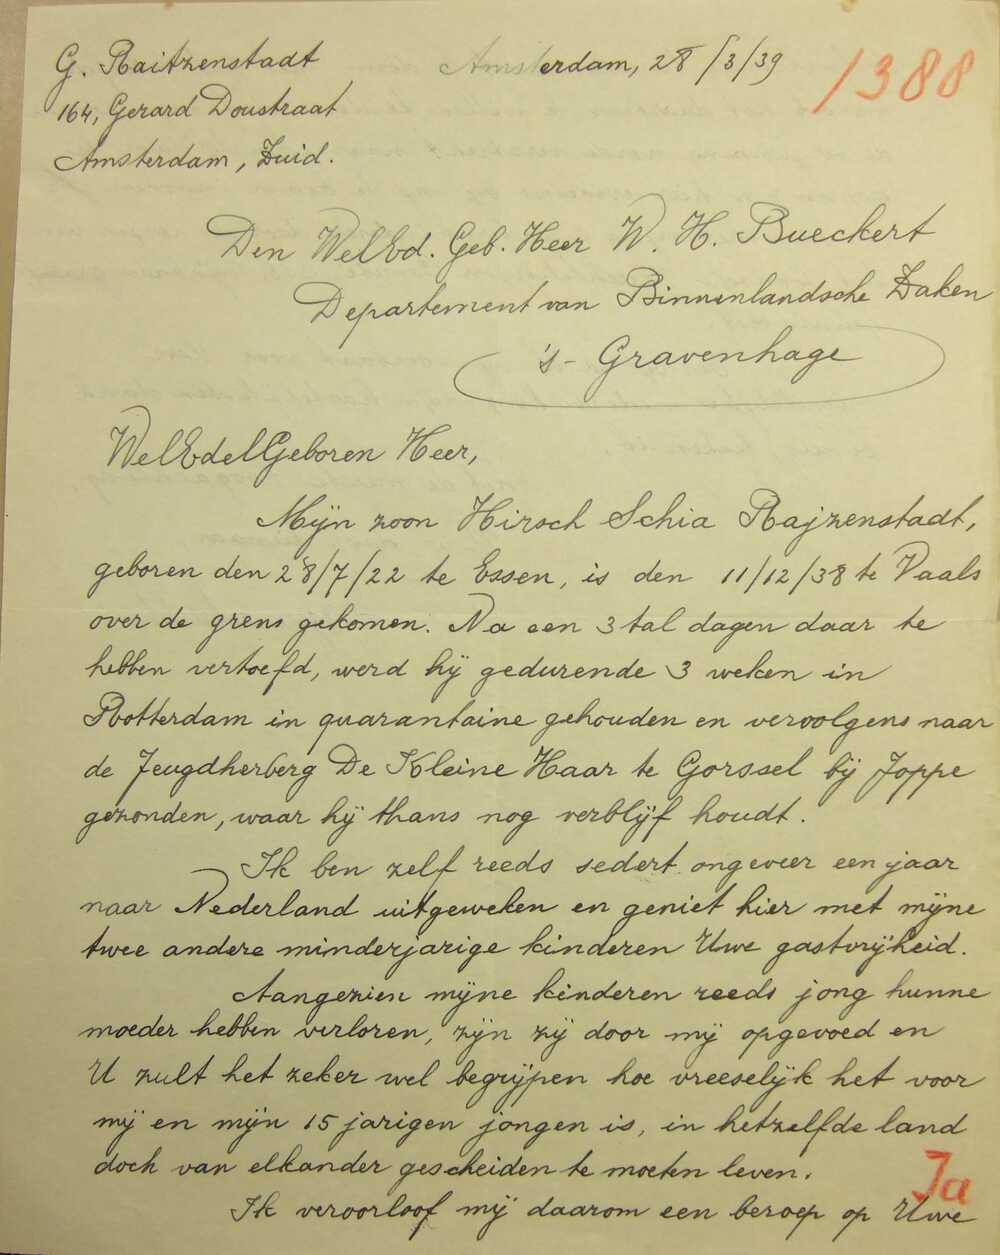 G. Raitzenstadt
164, Gerard Doustraat
Amsterdam, Zuid.
Amsterdam, 28/3/39
1388
Den WelEd. Geb. Heer W. H. Bueckert
Departement van Binnenlandsche Zaken
's-Gravenhage
WelEdelGeboren Heer,
Mijn zoon Hirsch Schia Rajzenstadt,
geboren den 28/7/22 te Essen, is den 11/12/38 te Vaals
over de grens gekomen. Na een 3 tal dagen daar te
hebben vertoefd, werd hij gedurende 3 weken in
Rotterdam in quarantaine gehouden en vervolgens naar
de Jeugdherberg De Kleine Haar te Gorssel bij Joppe
gezonden, waar hij thans nog verblijf houdt.
Ik ben zelf reeds sedert ongeveer een jaar
naar Nederland uitgeweken en geniet hier met mijne
twee andere minderjarige kinderen Uwe gastvrijheid.
Aangezien mijne kinderen reeds jong hunne
moeder hebben verloren, zijn zij door mij opgevoed en
U zult het zeker wel begrijpen hoe vreeselijk het voor
mij en mijn 15 jarigen jongen is, in hetzelfde land
doch van elkander gescheiden te moeten leven.
Ja
Ik veroorloof mij daarom een beroep op Uwe